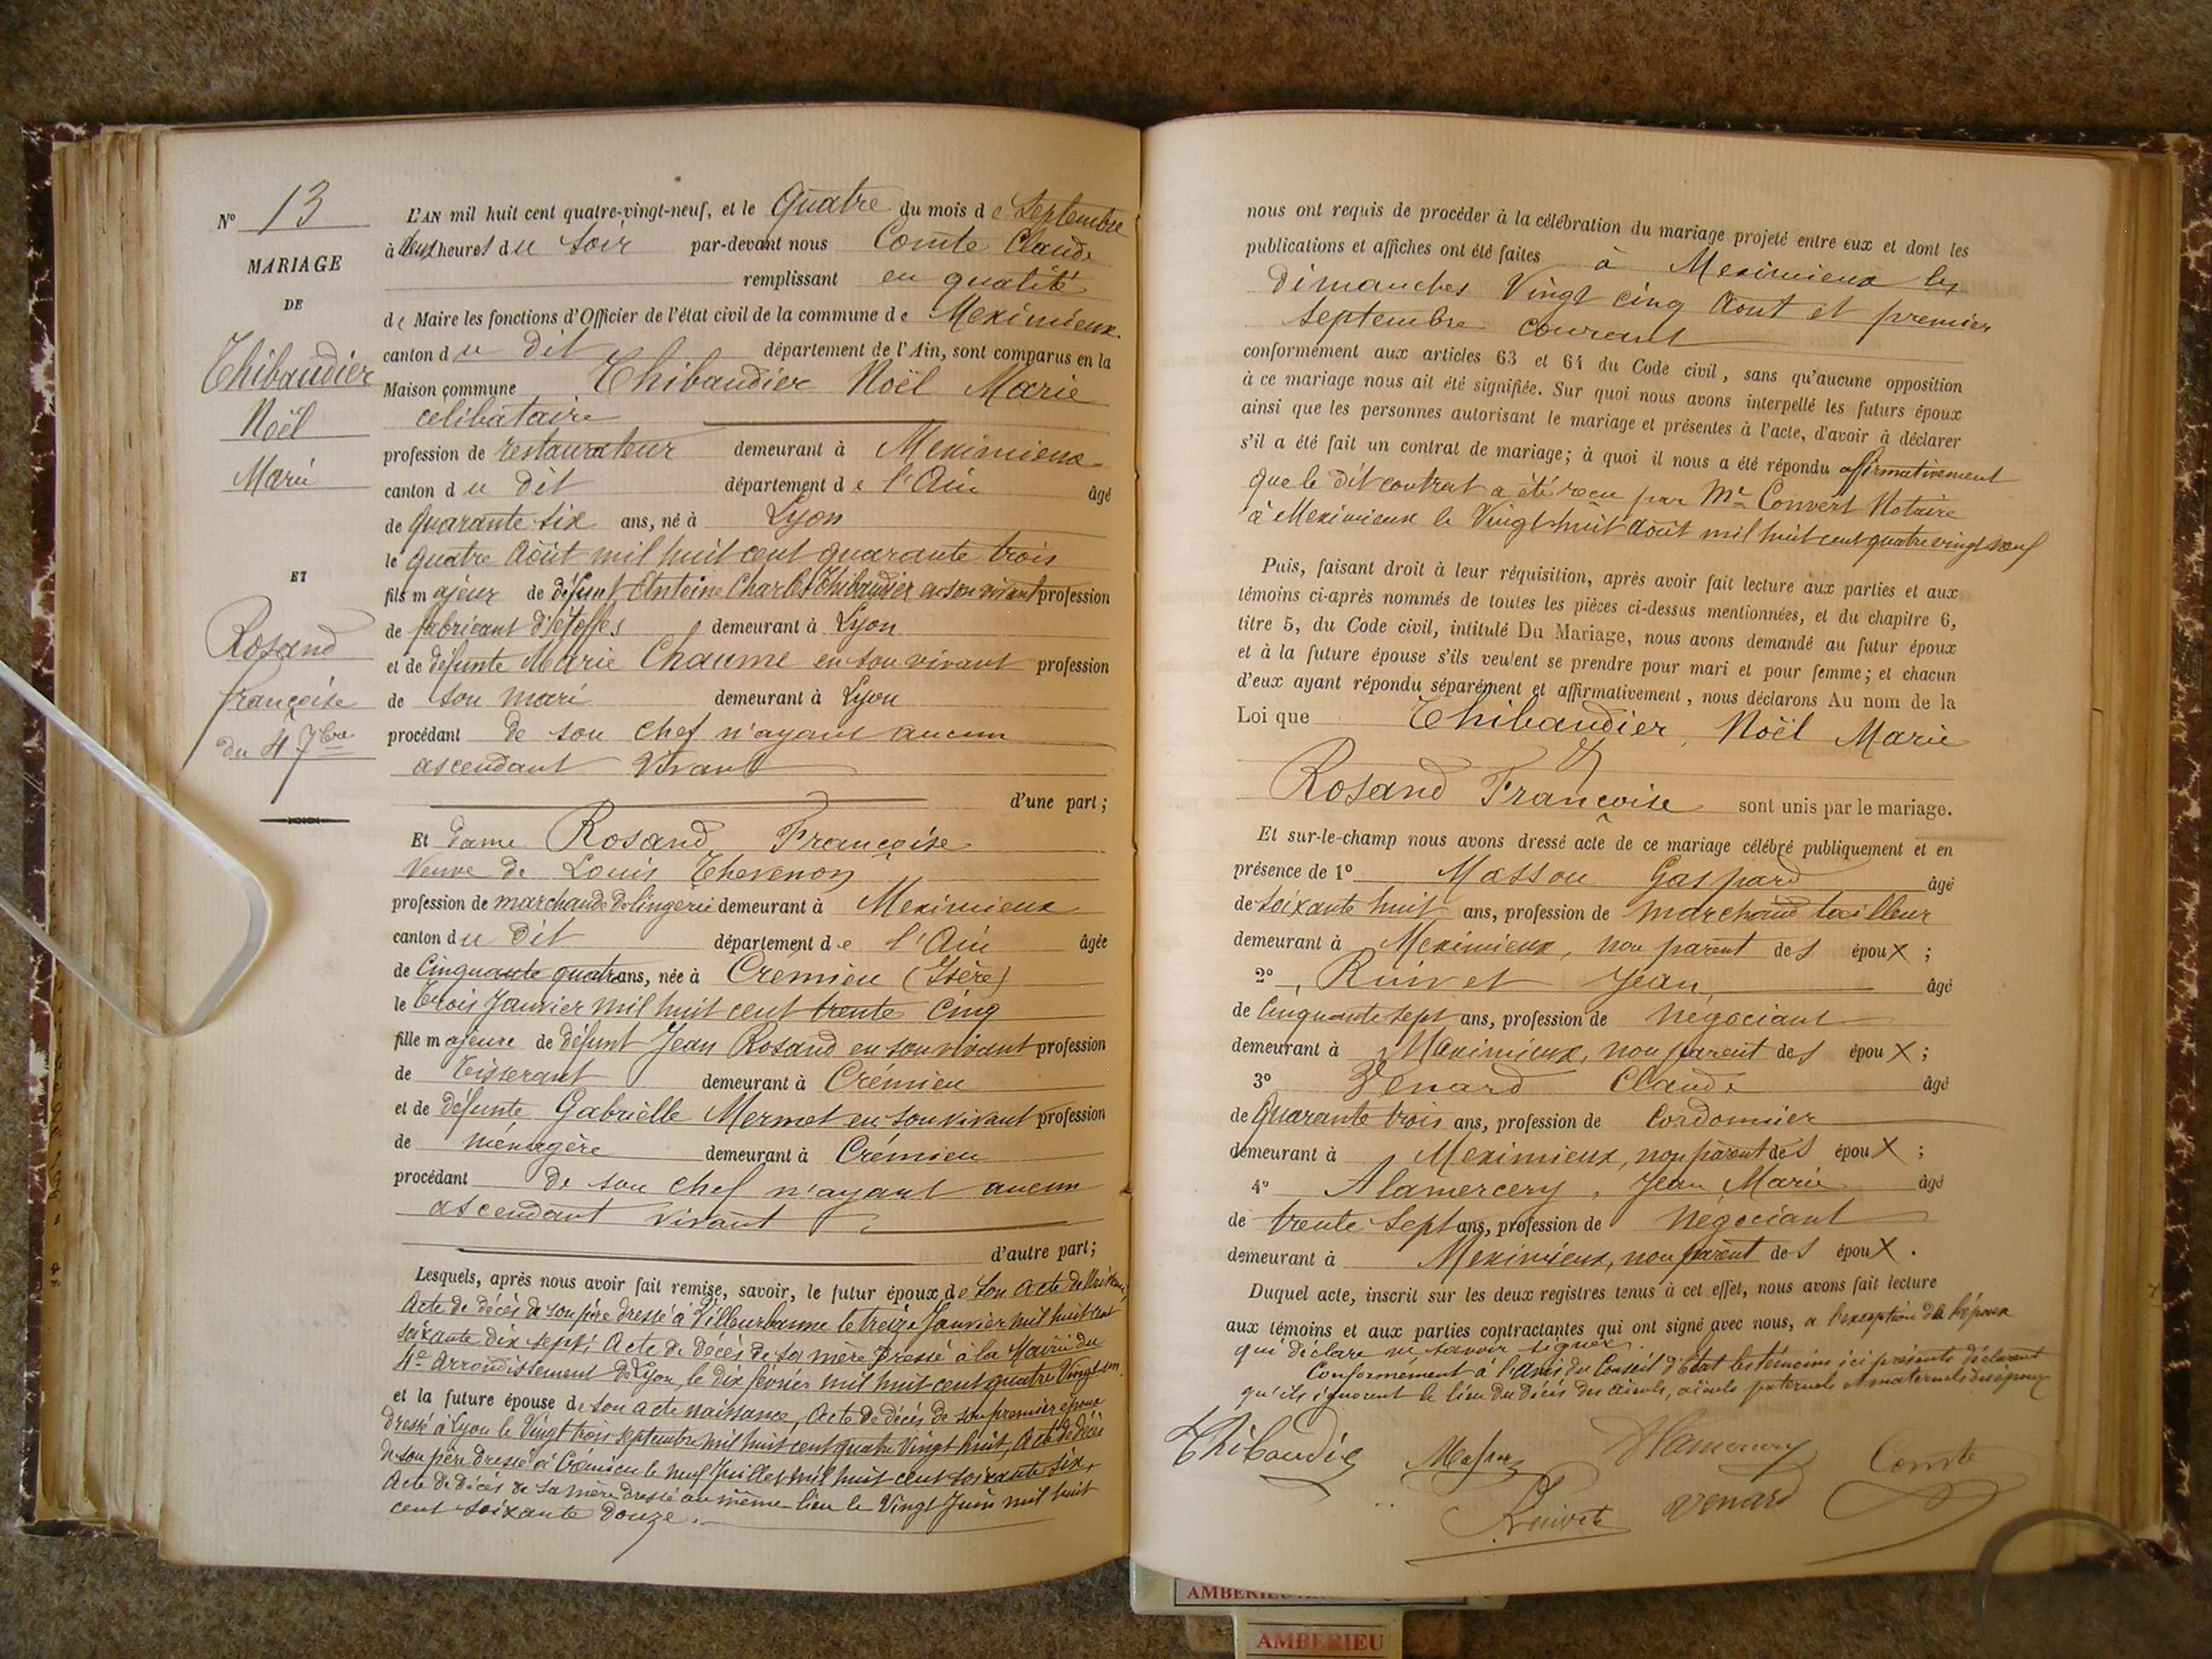 N° 13
MARIAGE
DE
Thibaudier
Noël
Marie
ET
Rosand
Françoise
du 4 7bre
L'AN mil huit cent quatre-vingt-neuf, et le Quatre du mois de Septembre
à deux heures du soir par-devant nous Comte Claude
remplissant en qualité
de Maire les fonctions d'Officier de l'état civil de la commune de Meximieux
canton du dit département de l'Ain, sont comparus en la
Maison commune Thibaudier Noël Marie
celibataire
profession de restaurateur demeurant à Meximieux
canton du dit département de l'Ain âgé
de quarante six ans, né à Lyon
le quatre Août mil huit cent quarante trois
fils majeur de défunt Antoine Charles Thibaudier en son vivant profession
de fabricant d'étoffes demeurant à Lyon
et de défunte Marie Chaume en son vivant profession
de son mari demeurant à Lyon
procédant de son chef n'ayant aucun
ascendant vivant
d'une part;
Et dame Rosand Françoise
veuve de Louis Thevenon
profession de marchande de lingerie demeurant à Meximieux
canton du dit département de l'Ain âgée
de Cinquante quatre ans, née à Crémieu (Isère)
le trois Janvier mil huit cent trente cinq
fille majeure de défunt Jean Rosand en son vivant profession
de Tisserant demeurant à Crémieu
et de défunte Gabrielle Mermet en son vivant profession
de ménagère demeurant à Crémieu
procédant de son chef n'ayant aucun
ascendant vivant
d'autre part;
Lesquels, après nous avoir fait remise, savoir, le futur époux de son acte de
Acte de décès de son père dressé à Villeurbanne le treize Janvier mil huit cent
soixante dix sept; Acte de décès de sa mère dressé à la Mairie du
4e Arrondissement de Lyon, le dix février mil huit cent quatre Vingt un
et la future épouse de son acte naissance, Acte de décès de son premier époux
dressé à Lyon le Vingt trois septembre mil huit cent quatre Vingt huit, Acte de décès
de son père dressé à Crémieu le neuf Juillet mil huit cent soixante six,
Acte de décès de sa mère dressé au même lieu le Vingt Juin mil huit
cent soixante douze.
nous ont requis de procéder à la célébration du mariage projeté entre eux et dont les
publications et affiches ont été faites à Meximieux les
dimanches Vingt cinq Aout et premier
septembre courant
conformément aux articles 63 et 64 du Code civil, sans qu'aucune opposition
à ce mariage nous ait été signifiée. Sur quoi nous avons interpellé les futurs époux
ainsi que les personnes autorisant le mariage et présentes à l'acte, d'avoir à déclarer
s'il a été fait un contrat de mariage; à quoi il nous a été répondu affirmativement
que le dit contrat a été reçu par Me Convert Notaire
à Meximieux le Vingt huit Août mil huit cent quatre vingt neuf
Puis, faisant droit à leur réquisition, après avoir fait lecture aux parties et aux
témoins ci-après nommés de toutes les pièces ci-dessus mentionnées, et du chapitre 6,
titre 5, du Code civil, intitulé Du Mariage, nous avons demandé au futur époux
et à la future épouse s'ils veulent se prendre pour mari et pour femme; et chacun
d'eux ayant répondu séparément et affirmativement, nous déclarons Au nom de la
Loi que Thibaudier, Noël Marie
&
Rosand Françoise sont unis par le mariage.
Et sur-le-champ nous avons dressé acte de ce mariage célébré publiquement et en
présence de 1° Masson Gaspard âgé
de soixante huit ans, profession de marchand tailleur
demeurant à Meximieux, non parent des époux;
2° Ruivet Jean, âgé
de Cinquante sept ans, profession de négociant
demeurant à Meximieux, non parent des époux;
3° Venard Claude âgé
de Quarante trois ans, profession de cordonnier
demeurant à Meximieux, non parent des époux;
4° Alamercery, Jean Marie âgé
de trente sept ans, profession de négociant
demeurant à Meximieux, non parent des époux.
Duquel acte, inscrit sur les deux registres tenus à cet effet, nous avons fait lecture
aux témoins et aux parties contractantes qui ont signé avec nous, a l'exception de l'épouse
qui déclare ne savoir signer.
Conformément à l'Avis du Conseil d'Etat les témoins ici présents déclarent
qu'ils ignorent le lieu du décès des aïeuls, aïeules paternels et maternels des époux
Thibaudier Masson Alamercery Comte
Ruivet Venard
AMBERIEU